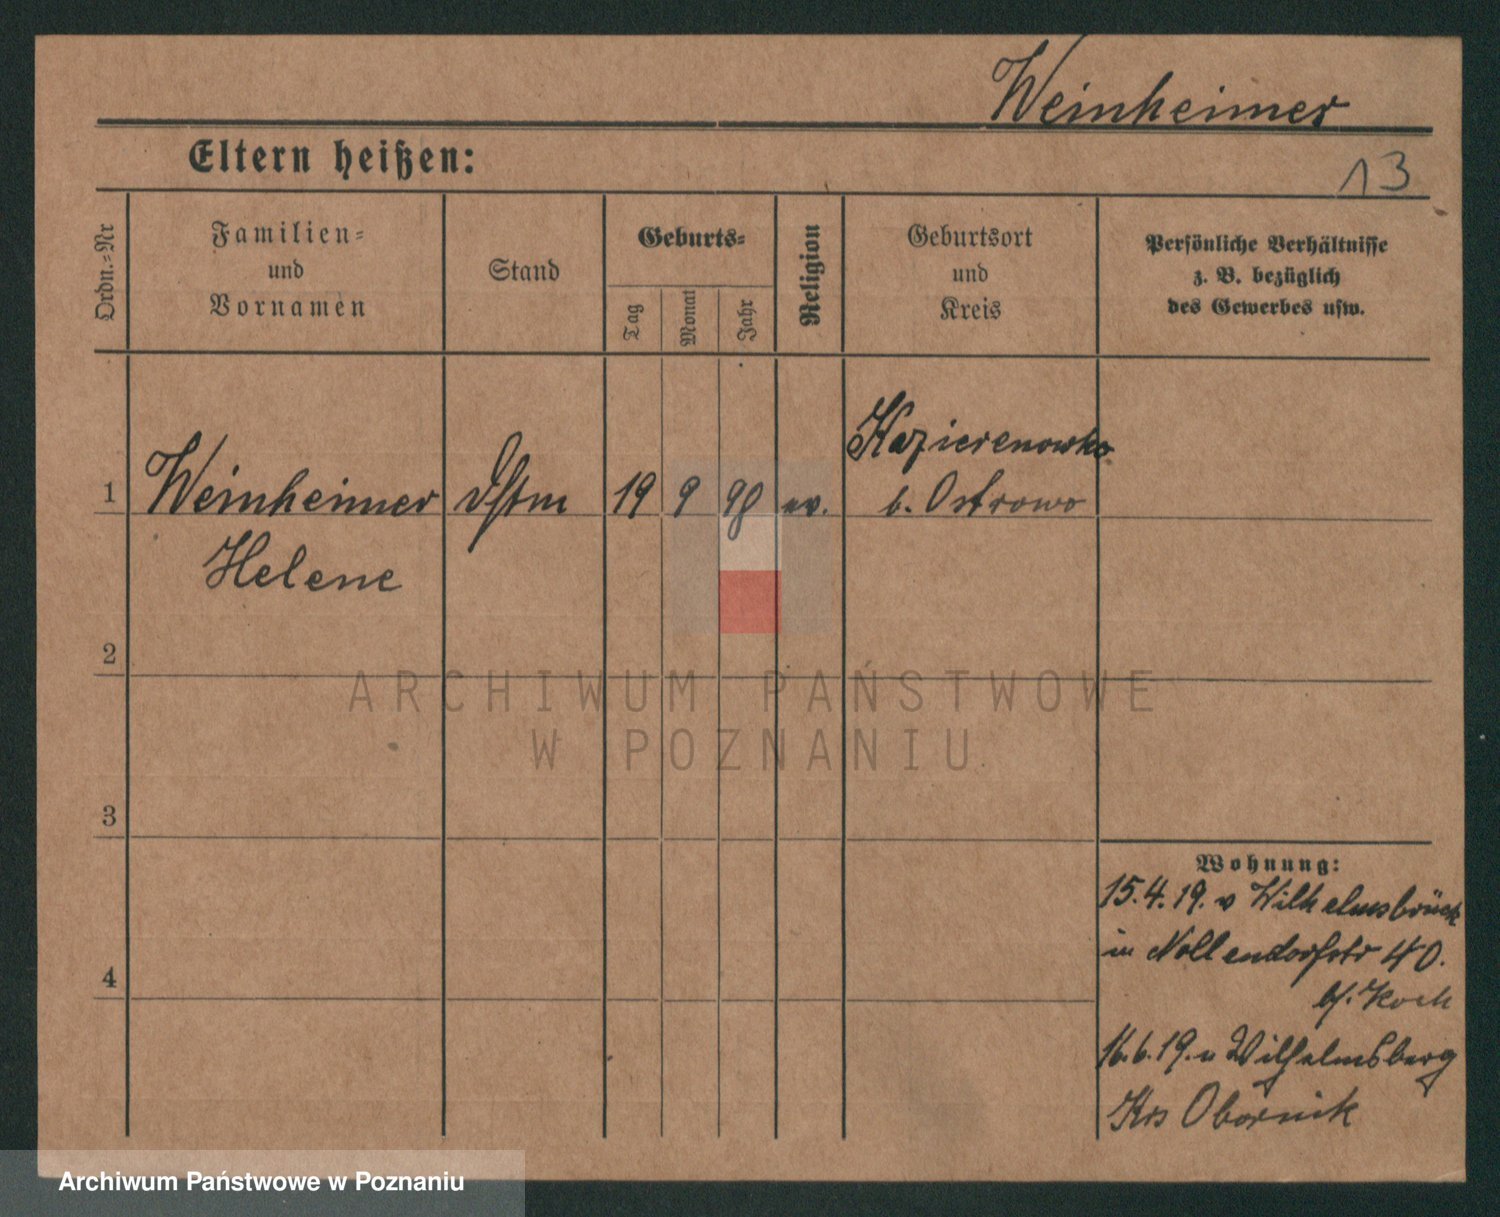 Weinheimer
Eltern heißen:
13
Ordn.=Nr
Familien=
und
Vornamen
Stand
Geburts=
Tag
Monat
Jahr
Religion
Geburtsort
und
Kreis
Persönliche Verhältnisse
z. B. bezüglich
des Gewerbes usw.
1
Weinheimer
Helene
Dstm
19
9
98
ev.
Kazierenowko
b. Ostrowo
2
ARCHIWUM PAŃSTWOWE
W POZNANIU
3
Wohnung:
15.4.19. v Wilhelmsbrück
in Nollendorfstr 40.
bf. Koch
4
16.6.19. n Wilhelmsberg
Krs Obornik
Archiwum Państwowe w Poznaniu